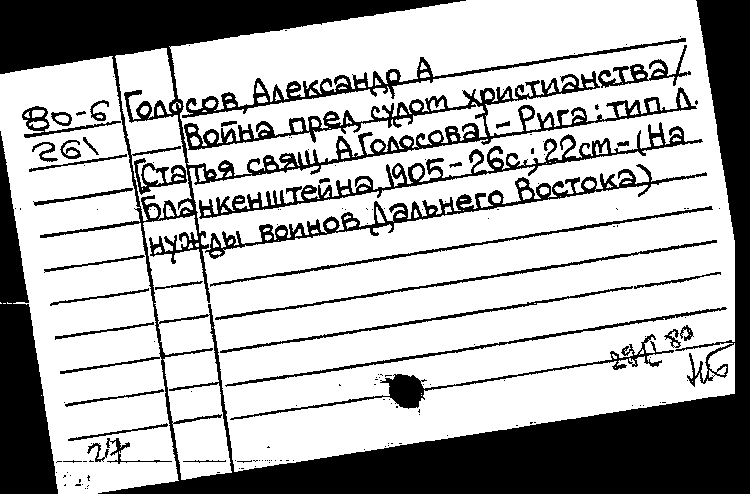 80-6
261
Голосов, Александр А
Война пред судом христианства /
[Статья свящ. А. Голосова]. - Рига: тип. Л.
Бланкенштейна, 1905. - 26с.; 22см. - (На
нужды воинов Дальнего Востока)
80
27